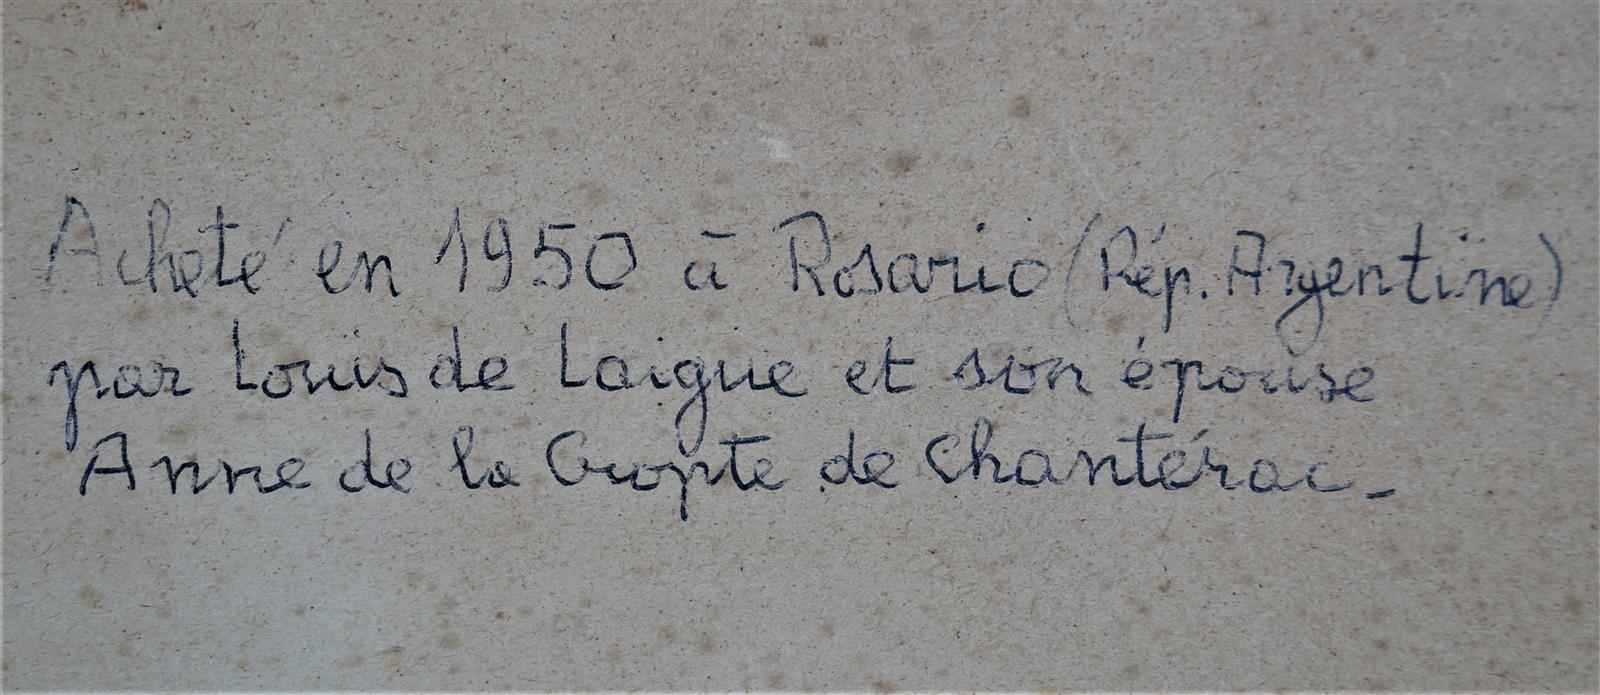 Acheté en 1950 à Rosario (Rép. Argentine)
par Louis de Laigue et son épouse
Anne de la Cropte de Chantérac_